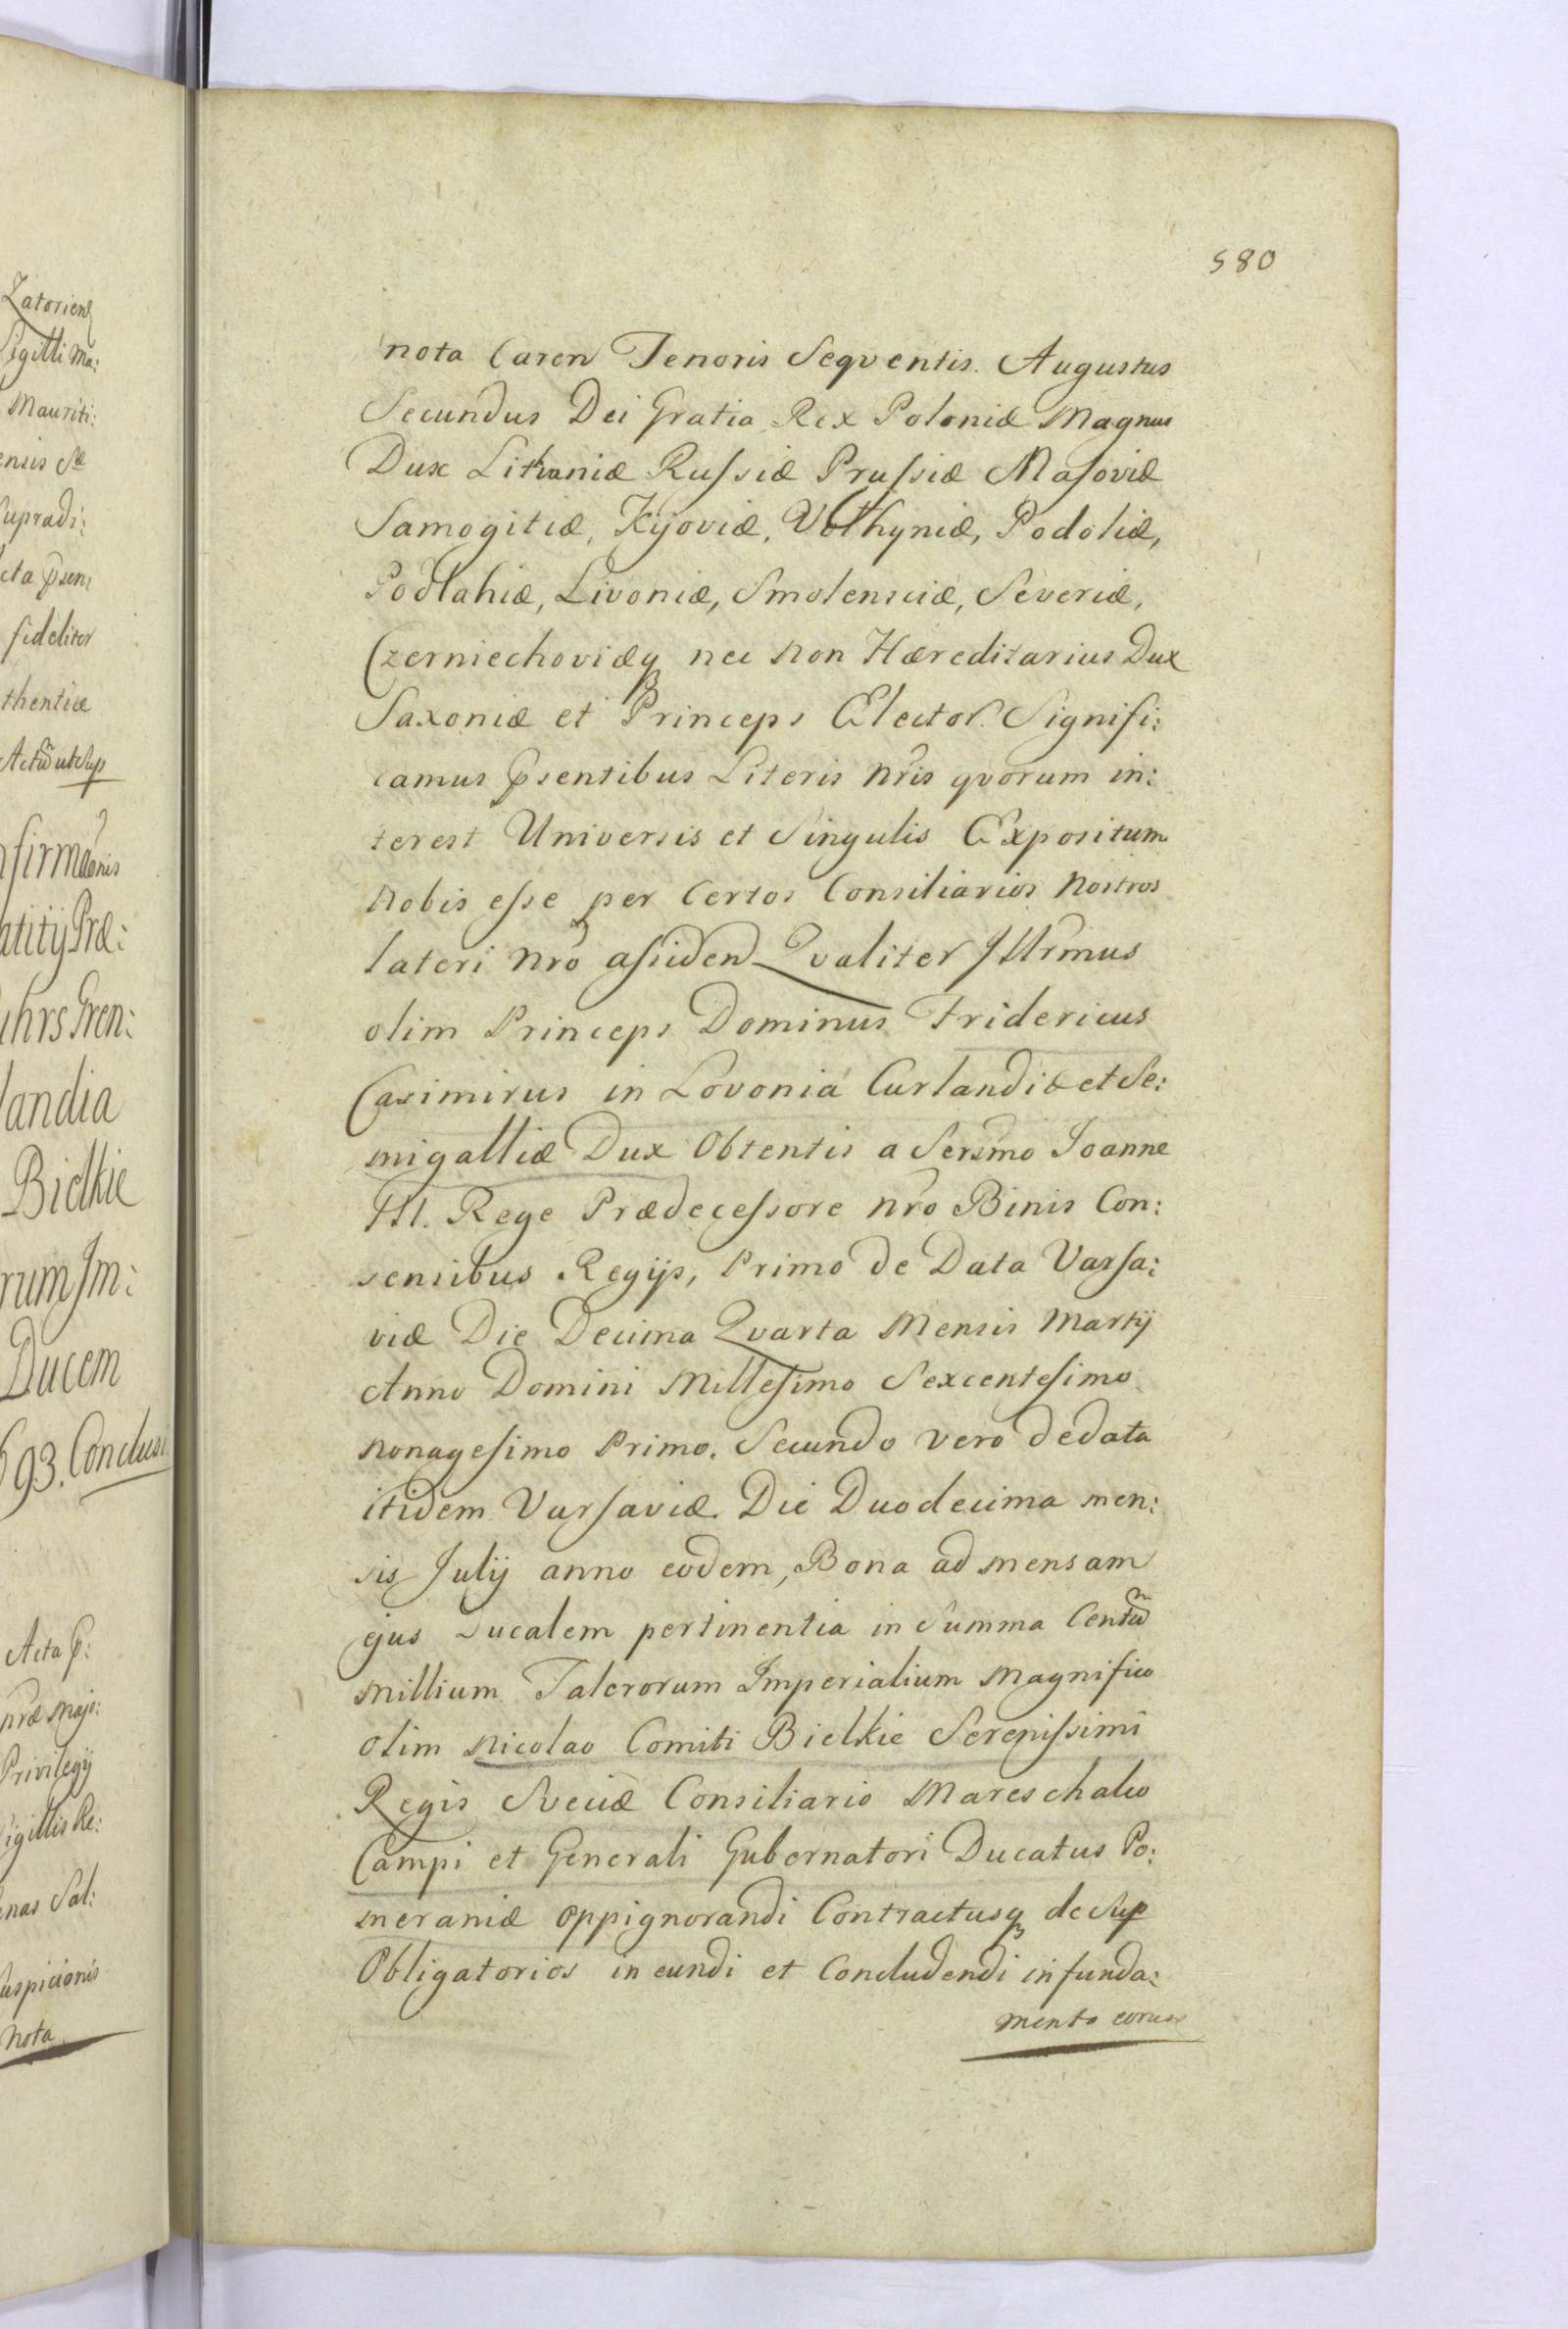 Zatorien
Sigilli Ma:
Mauriti:
ensis
Supradi:
cta
fideliter
thentice
Actu ut Sup
nfirmaonis
atitij Præ:
uhrs Gren:
landia
Bielkie
rum Im:
Ducem
693. Conclusi
Acta p:
præ Maje:
Privilegij
Sigillis Re:
nas Sal:
uspicionis
nota
580
nota Caren Tenoris Seqventis. Augustus
Secundus Dei Gratia Rex Poloniæ Magnus
Dux Lithvaniæ Russiæ Prussiæ Masoviæ
Samogitiæ, Kijoviæ, Volhyniæ, Podoliæ,
Podlahiæ, Livoniæ, Smolensciæ, Severiæ,
Czerniechoviæq nec non Hæreditarius Dux
Saxoniæ et Princeps Elector. Signifi:
camus psentibus Literis nris qvorum in:
terest Universis et Singulis Expositum
nobis esse per Certos Consiliarios Nostros
lateri nro assiden Qvaliter Illrmus
olim Princeps Dominus Fridericus
Casimirus in Lovonia Curlandiæ et Se:
migalliæ Dux Obtentis a Sersmo Joanne
III. Rege Prædecessore nro Binis Con:
sensibus Regijs, Primo de Data Varsa:
viæ Die Decima Qvarta Mensis Martij
Anno Domini Millesimo Sexcentesimo
nonagesimo Primo. Secundo vero de data
itidem Varsaviæ. Die Duodecima men:
sis Julij anno eodem, Bona ad mensam
ejus Ducalem pertinentia in Summa Centu
Millium Talerorum Imperialium Magnifico
olim Nicolao Comiti Bielkie Serenissimi
Regis Sveciæ Consiliario Mareschalco
Campi et Generali Gubernatori Ducatus Po:
meraniæ oppignorandi Contractusq de Sup
Obligatorios in eundi et Concludendi in funda:
mento eorum